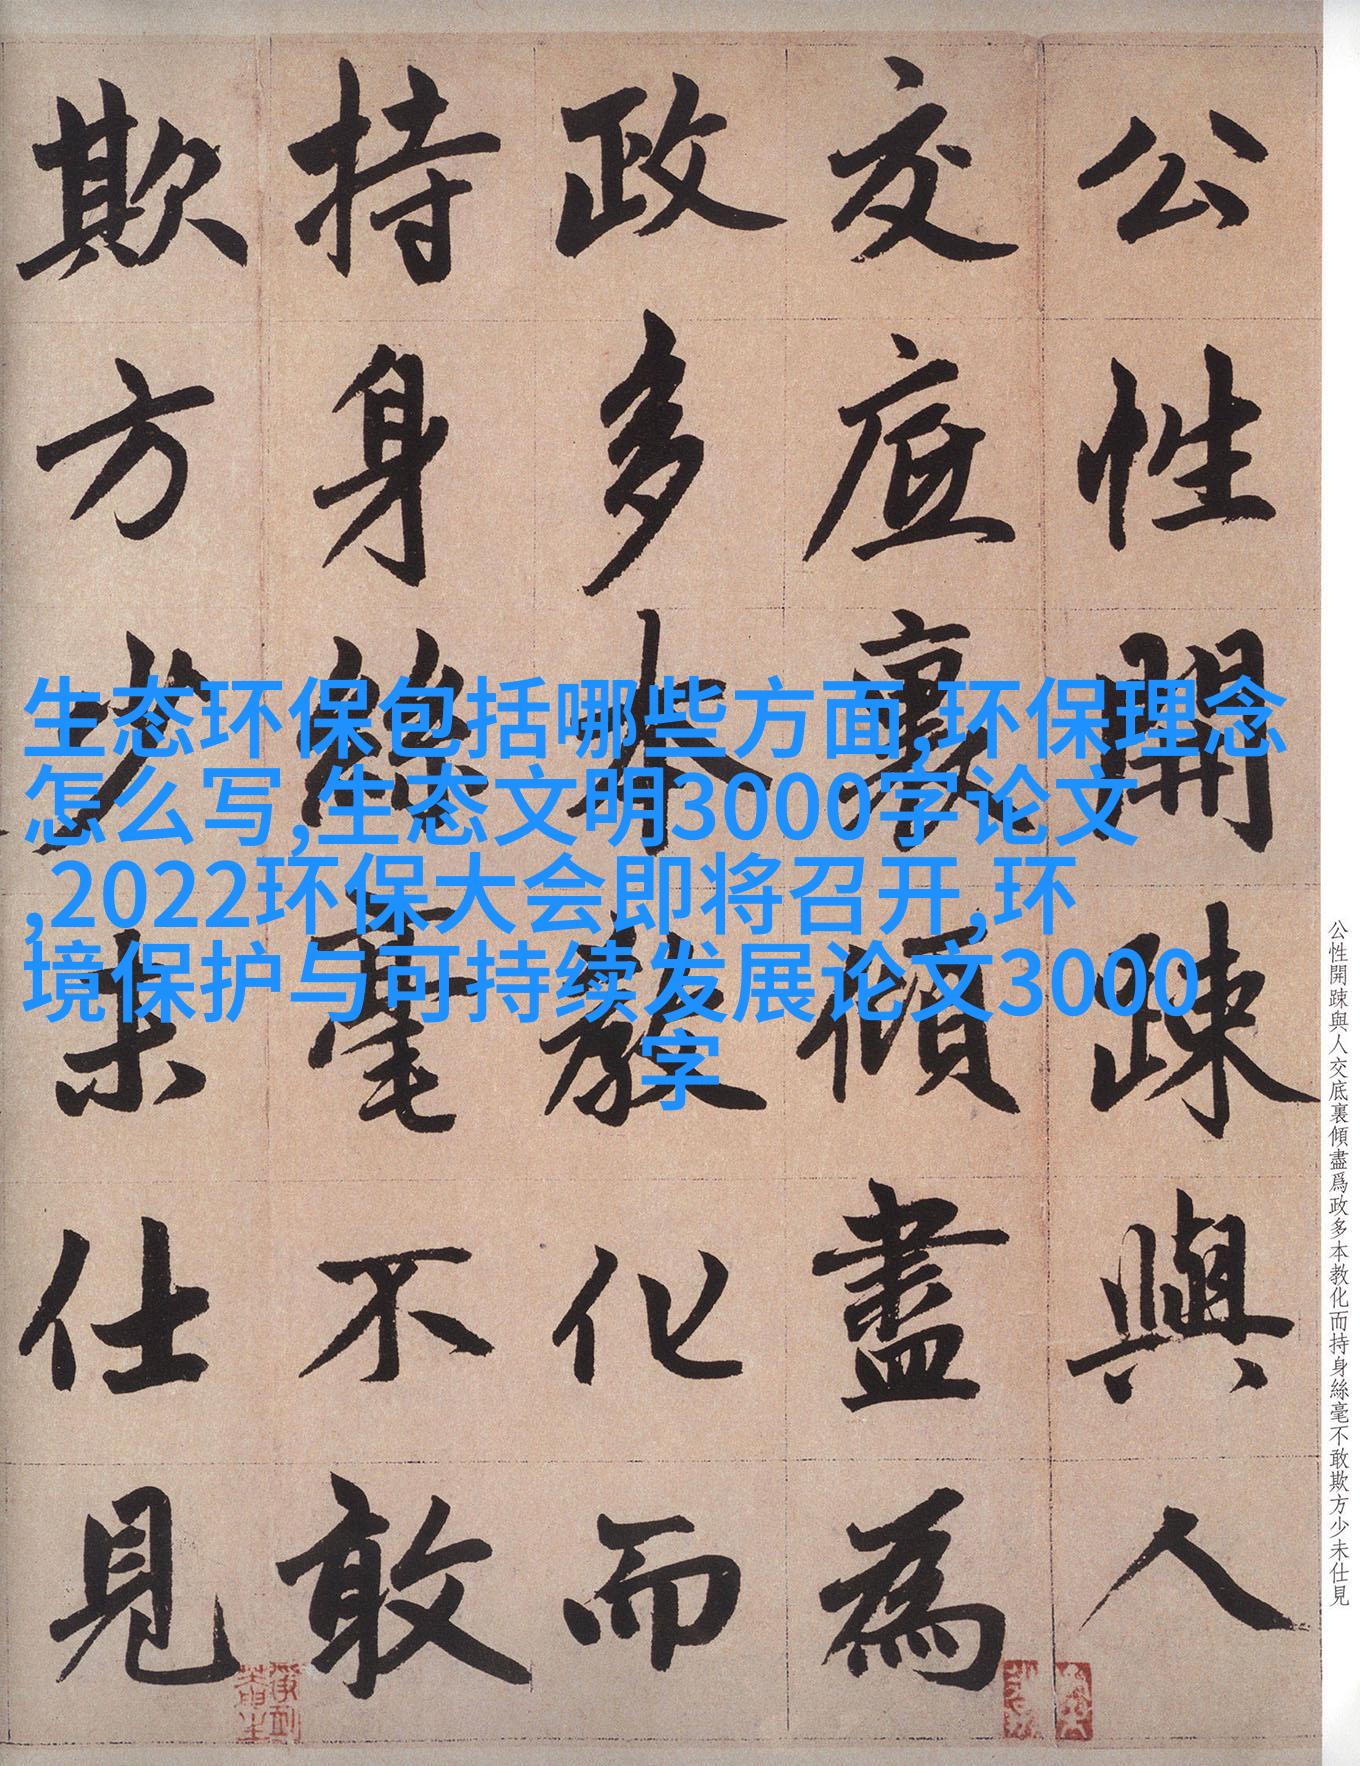 公性開踈與人
交底裏傾盡為
政多本教化而
持身絲毫不敢
欺方少未仕見
生态环保包括哪些方面,环保理念
怎么写,生态文明3000字论文
,2022环保大会即将召开,环
境保护与可持续发展论文3000
字
公性開踈與人交底裏傾盡爲政多本教化而持身絲毫不敢欺方少未仕見